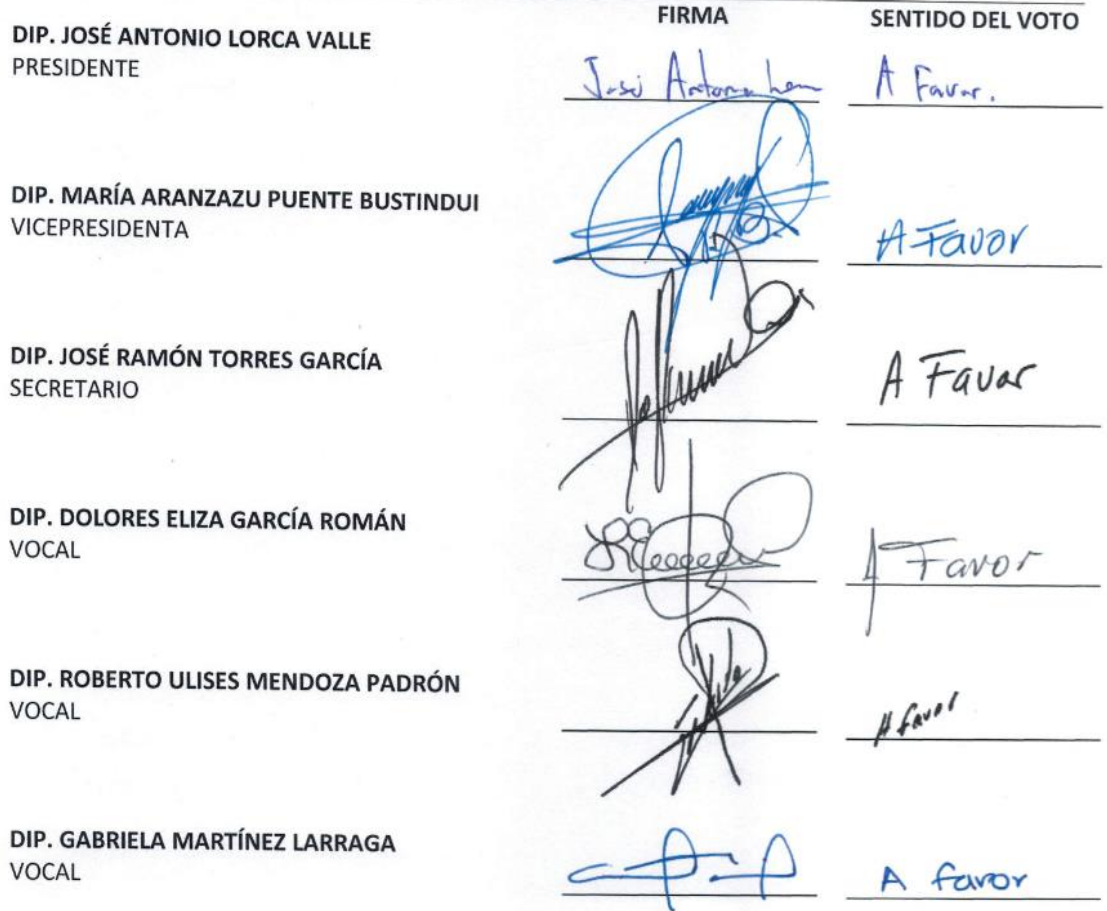 FIRMA SENTIDO DEL VOTO
DIP. JOSÉ ANTONIO LORCA VALLE
PRESIDENTE
José Antonio A Favor.
DIP. MARÍA ARANZAZU PUENTE BUSTINDUI
VICEPRESIDENTA
A Favor
DIP. JOSÉ RAMÓN TORRES GARCÍA
SECRETARIO
A Favor
DIP. DOLORES ELIZA GARCÍA ROMÁN
VOCAL
A Favor
DIP. ROBERTO ULISES MENDOZA PADRÓN
VOCAL
A favor
DIP. GABRIELA MARTÍNEZ LARRAGA
VOCAL
A favor